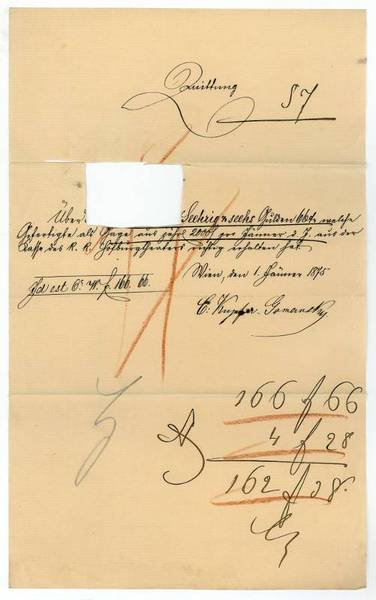 Quittung
57
Über Sechzig u. sechs Gulden 66 kr welche
Gefertigte als Gage aus jährl. 2000 f pro Jänner d. J. aus der
Kasse des k. k. Hofburgtheaters richtig erhalten hat.
Wien, den 1. Jänner 1875
Id est Ö. W. f 166. 66.
C. Kupfer-Gomansky
166 f 66
4 f 28
162 f 38.